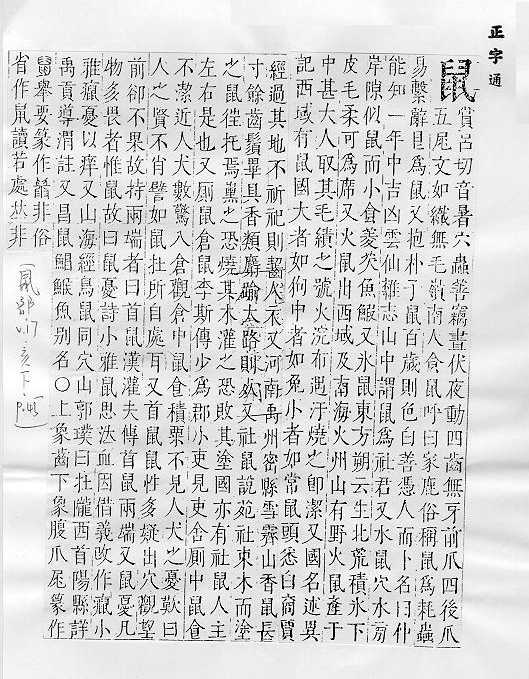 正字通
鼠 賞呂切音暑穴蟲善竊晝伏夜動四齒無牙前爪四後爪
五尾文如織無毛嶺南人食鼠呼曰家鹿俗稱鼠為耗蟲
易繫辭艮為鼠又抱朴子鼠百歲則色白善憑人而卜名曰仲
能知一年中吉凶雲仙雜志山中謂鼠為社君又水鼠穴水旁
岸隙似鼠而小食菱芡魚鰕又氷鼠東方朔云生北荒積氷下
皮毛柔可為席又火鼠出西域及南海火州山有野火鼠產于
中甚大人取其毛績之號火浣布遇汙燒之卽潔又國名述異
記西域有鼠國大者如狗中者如兔小者如常鼠頭悉白商賈
經過其地不祈祀則齧人衣又河南禹州密縣雪霽山香鼠長
寸餘齒鬚畢具香類麝踰大路則歿又社鼠說苑社束木而塗
之鼠徃托焉熏之恐燒其木灌之恐敗其塗國亦有社鼠人主
左右是也又厠鼠倉鼠李斯傳少為郡小吏見吏舍厠中鼠食
不潔近人犬數驚入倉觀倉中鼠食積粟不見人犬之憂歎曰
人之賢不肖譬如鼠在所自處耳又首鼠鼠性多疑出穴觀望
前卻不果故持兩端者曰首鼠漢灌夫傳首鼠兩端又鼠憂凡
物多畏者惟鼠故曰鼠憂詩小雅鼠思泣血因借義改作癙小
雅癙憂以痒又山海經鳥鼠同穴山郭璞曰在隴西首陽縣詳
禹貢導渭註又昌鼠鯝鯸魚別名○上象齒下象腹爪尾篆作
舉要篆作 非俗
省作䑕讀若處𠀤非
鼠部 亥下